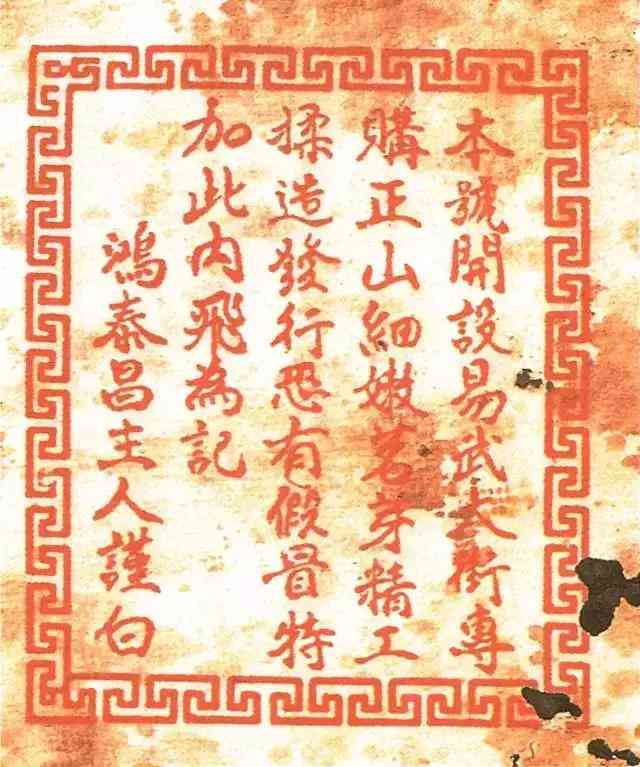 本號開設易武大街專
購正山細嫩茗芽精工
揉造發行恐有假冒特
加此內飛為記
鴻泰昌主人謹白